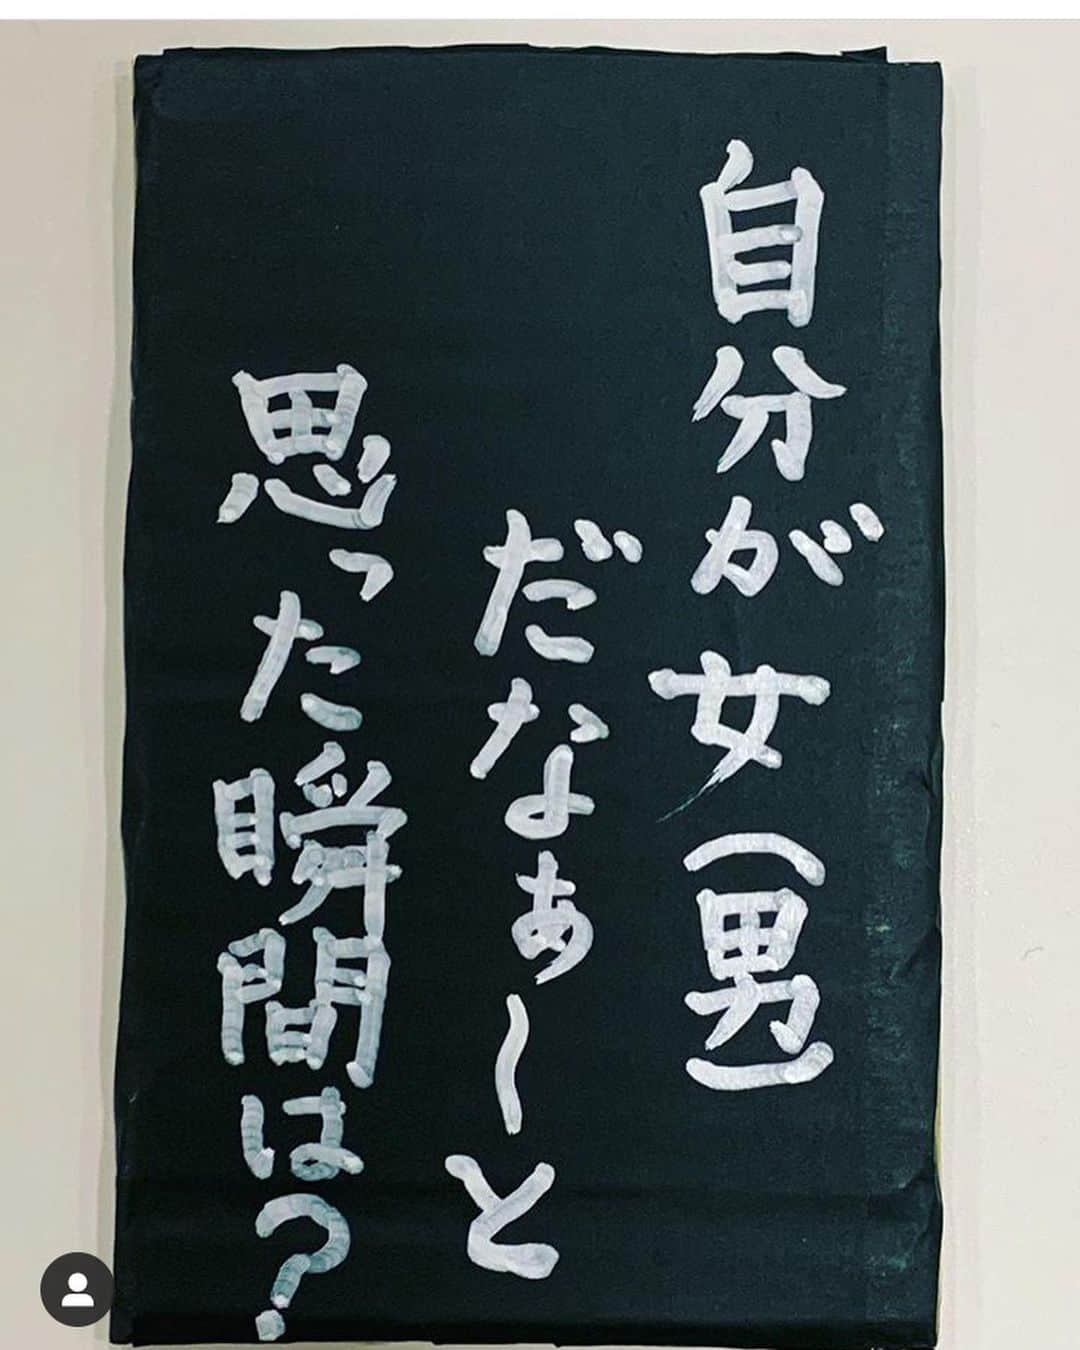 自分が女(男)
だなぁ〜と
思った瞬間は?